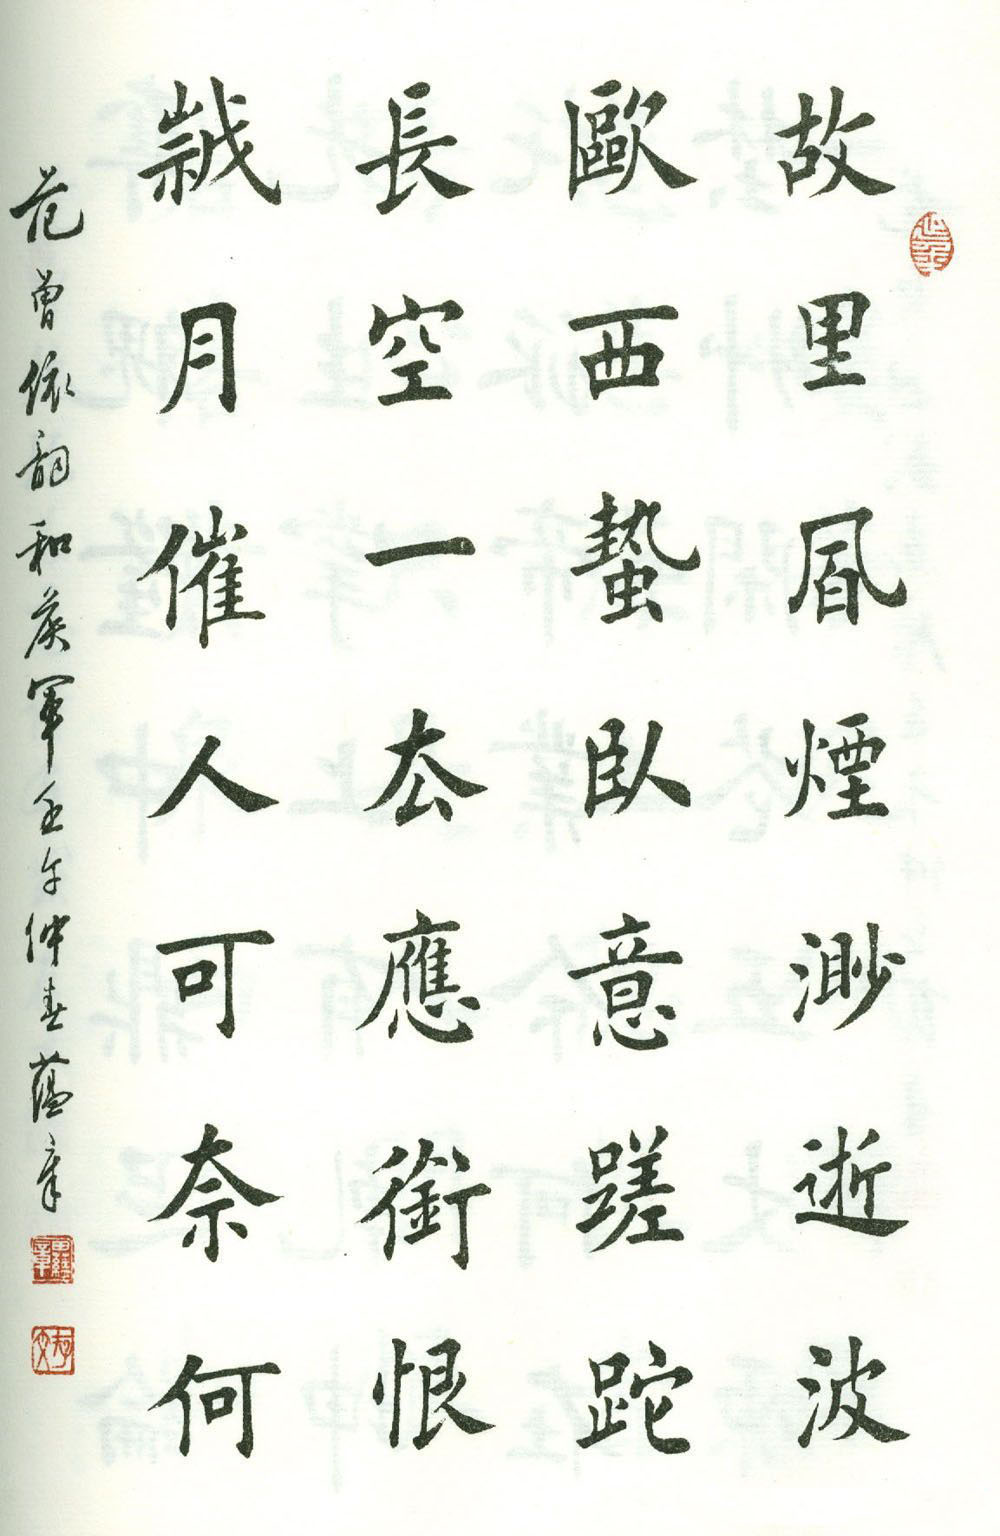 故里風煙渺逝波
歐西蟄臥意蹉跎
長空一厺應銜恨
歲月催人可奈何
范曾依韵和軍壬午仲春蘊章